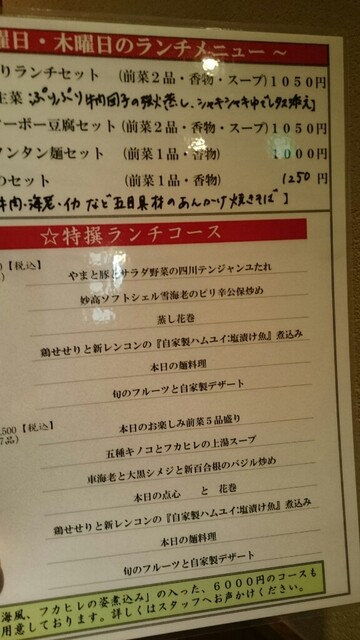 曜日・木曜日のランチメニュー ～
りランチセット （前菜２品・香物・スープ）１０５０円
主菜 ぷりぷり牛肉団子の強火蒸し、シャキシャキゆでレタス添え］
ーボー豆腐セット（前菜２品・香物・スープ）１０５０円
ンタン麺セット （前菜１品・香物） １０００円
のセット （前菜１品・香物） １２５０円
牛肉・海老・イカ など 五目具材のあんかけ焼きそば ］
☆特撰ランチコース
【税込】
やまと豚とサラダ野菜の四川テンジャンユたれ
妙高ソフトシェル雪海老のピリ辛公保炒め
蒸し花巻
鶏せせりと新レンコンの『自家製ハムユイ：塩漬け魚』煮込み
本日の麺料理
旬のフルーツと自家製デザート
,500【税込】
7品）
本日のお楽しみ前菜５品盛り
五種キノコとフカヒレの上湯スープ
車海老と大黒シメジと新百合根のバジル炒め
本日の点心 と 花巻
鶏せせりと新レンコンの『自家製ハムユイ：塩漬け魚』煮込み
本日の麺料理
旬のフルーツと自家製デザート
海風、フカヒレの姿煮込み」の入った、６０００円のコースも
用意しております。詳しくはスタッフへお声かけください。